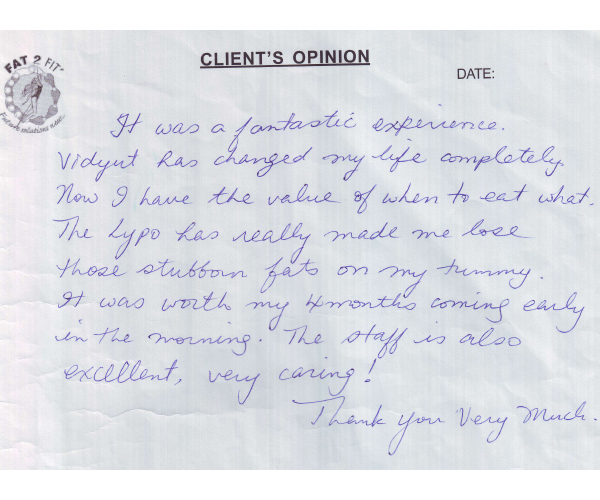 FAT 2 FIT
CLIENT'S OPINION
DATE:
It was a fantastic experience.
Vidyut has changed my life completely.
Now I have the value of when to eat what.
The Lypo has really made me lose
those stubborn fats on my tummy.
It was worth my 4 months coming early
in the morning. The staff is also
excellent, very caring!
Thank you Very Much.